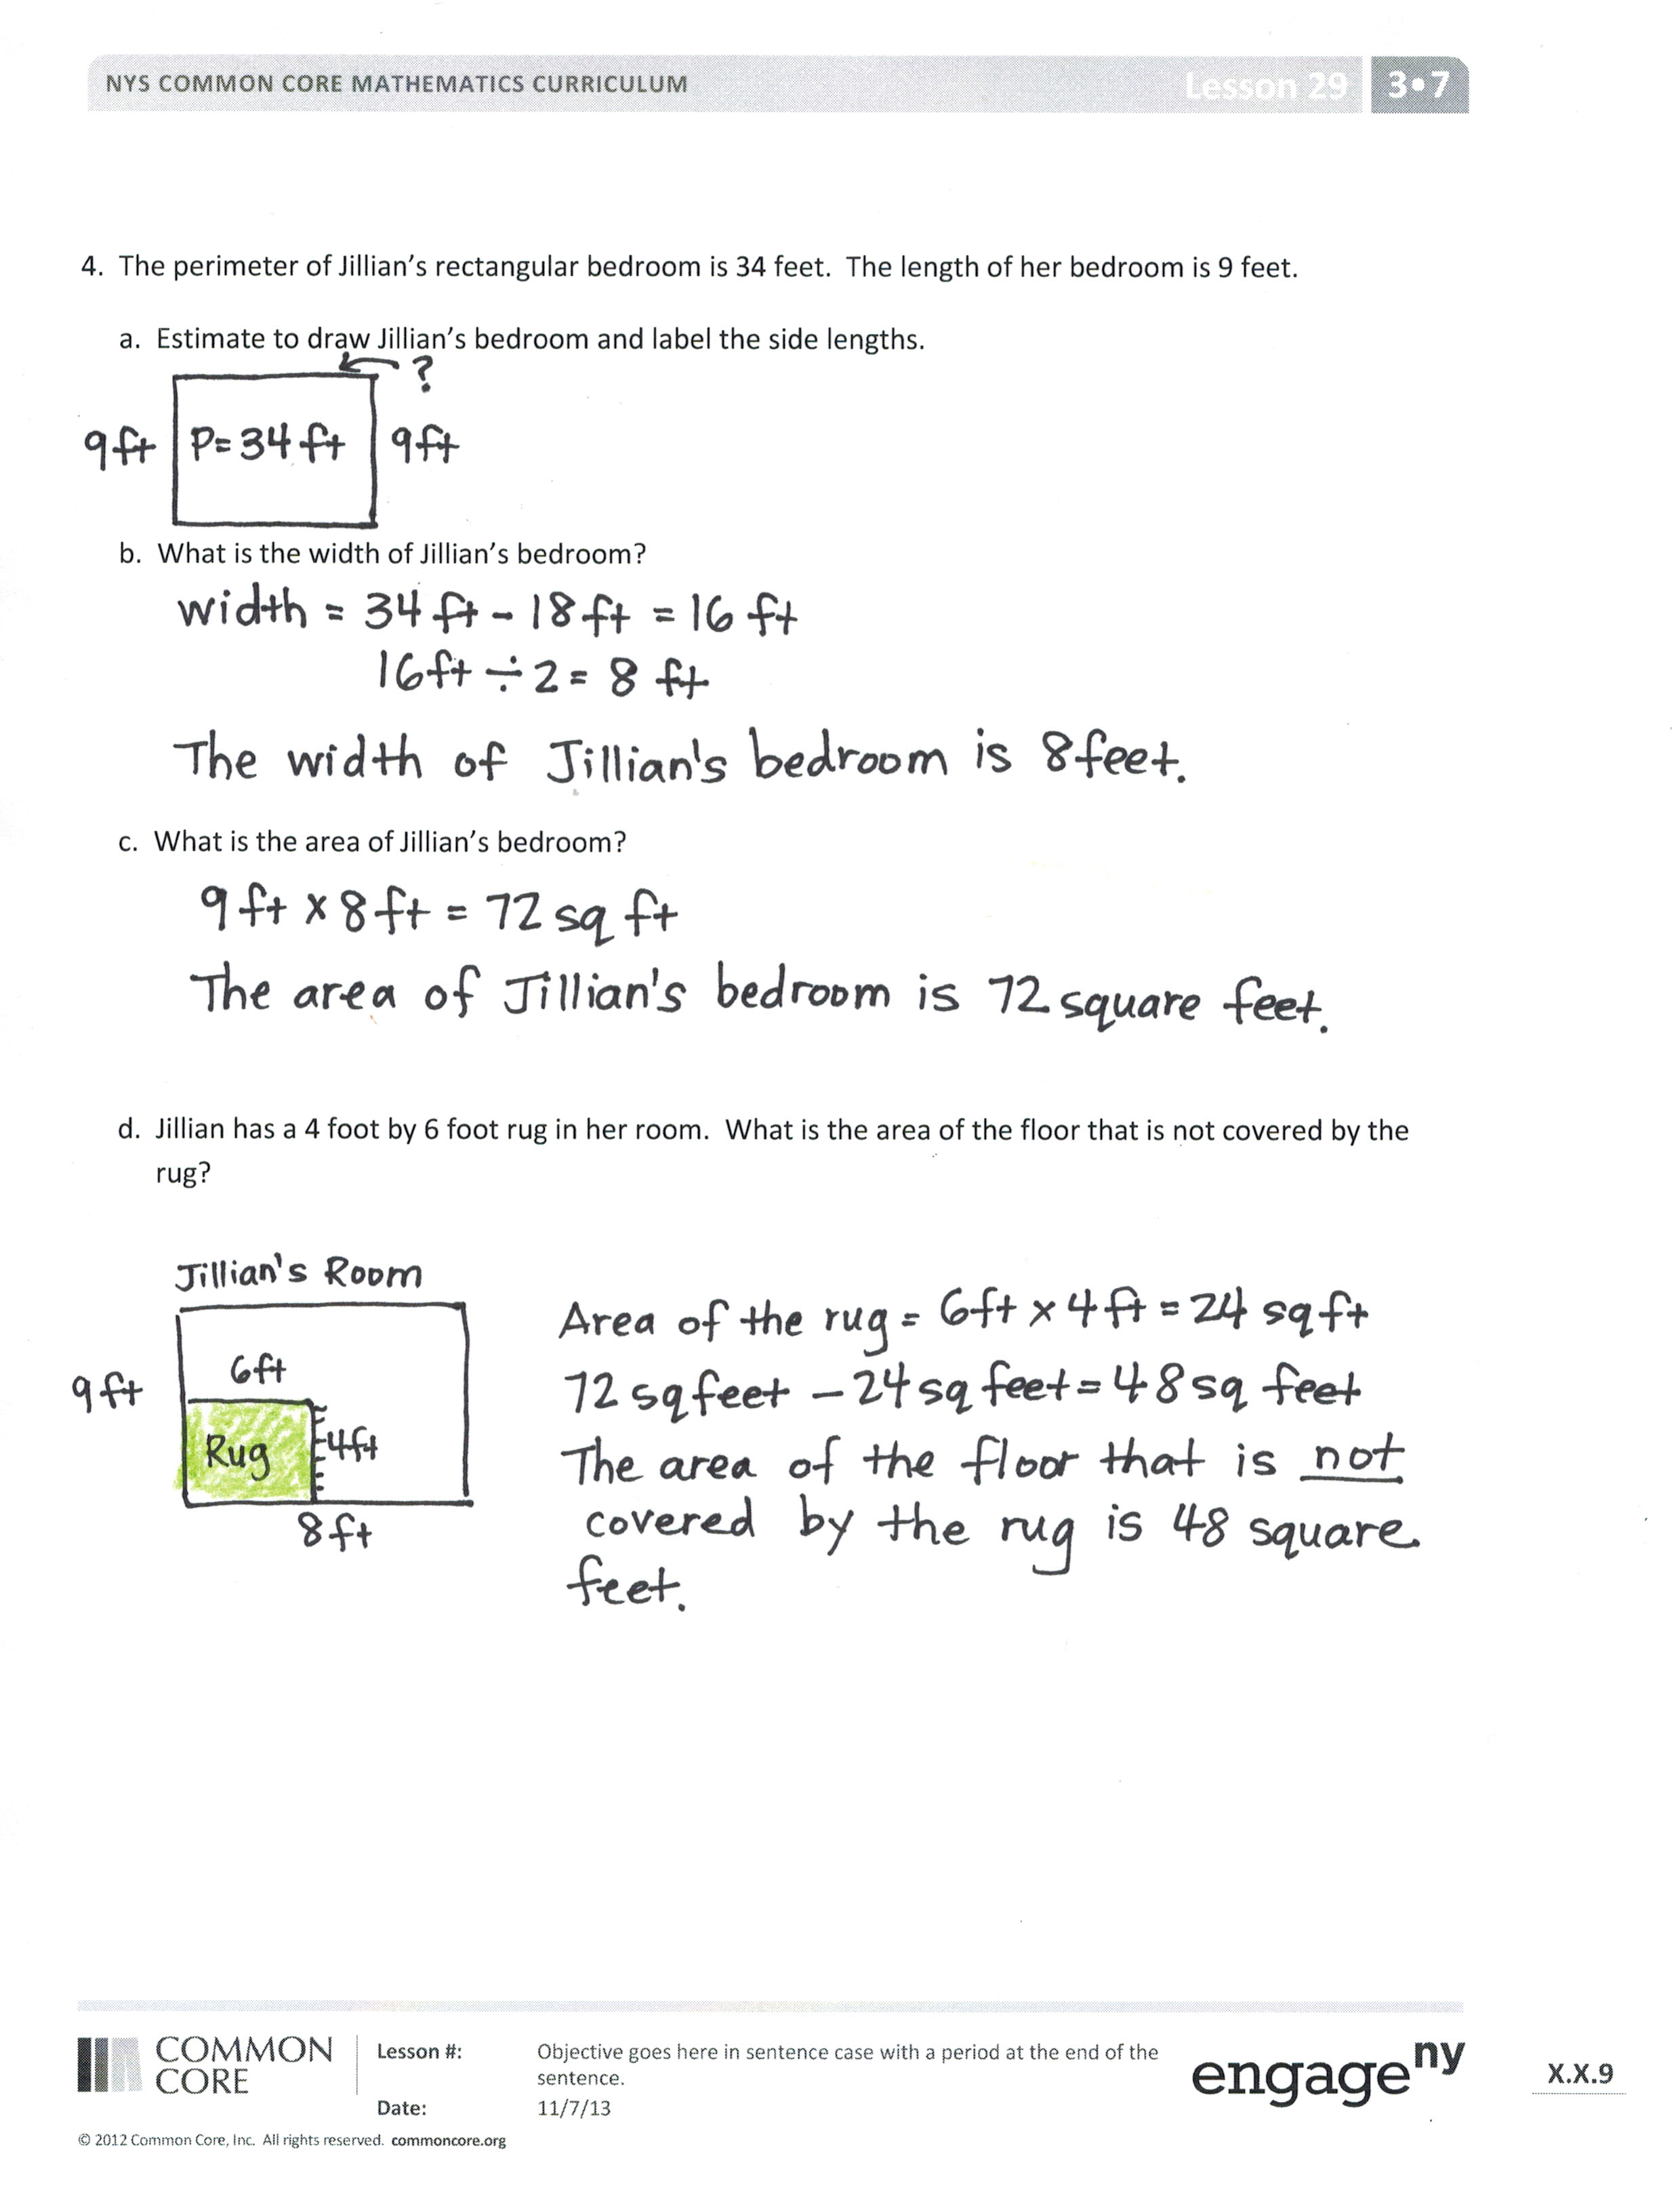 NYS COMMON CORE MATHEMATICS CURRICULUM Lesson 29 3•7
4. The perimeter of Jillian's rectangular bedroom is 34 feet. The length of her bedroom is 9 feet.
a. Estimate to draw Jillian's bedroom and label the side lengths.
?
9ft P=34ft 9ft
b. What is the width of Jillian's bedroom?
width = 34 ft - 18 ft = 16 ft
16ft ÷ 2 = 8 ft
The width of Jillian's bedroom is 8 feet.
c. What is the area of Jillian's bedroom?
9 ft x 8 ft = 72 sq ft
The area of Jillian's bedroom is 72 square feet.
d. Jillian has a 4 foot by 6 foot rug in her room. What is the area of the floor that is not covered by the
rug?
Jillian's Room
9ft
6ft
Rug 4ft
8ft
Area of the rug = 6ft x 4ft = 24 sq ft
72 sq feet - 24 sq feet = 48 sq feet
The area of the floor that is not
covered by the rug is 48 square
feet.
COMMON
CORE
Lesson #: Objective goes here in sentence case with a period at the end of the
sentence.
Date: 11/7/13
engageny
X.X.9
© 2012 Common Core, Inc. All rights reserved. commoncore.org